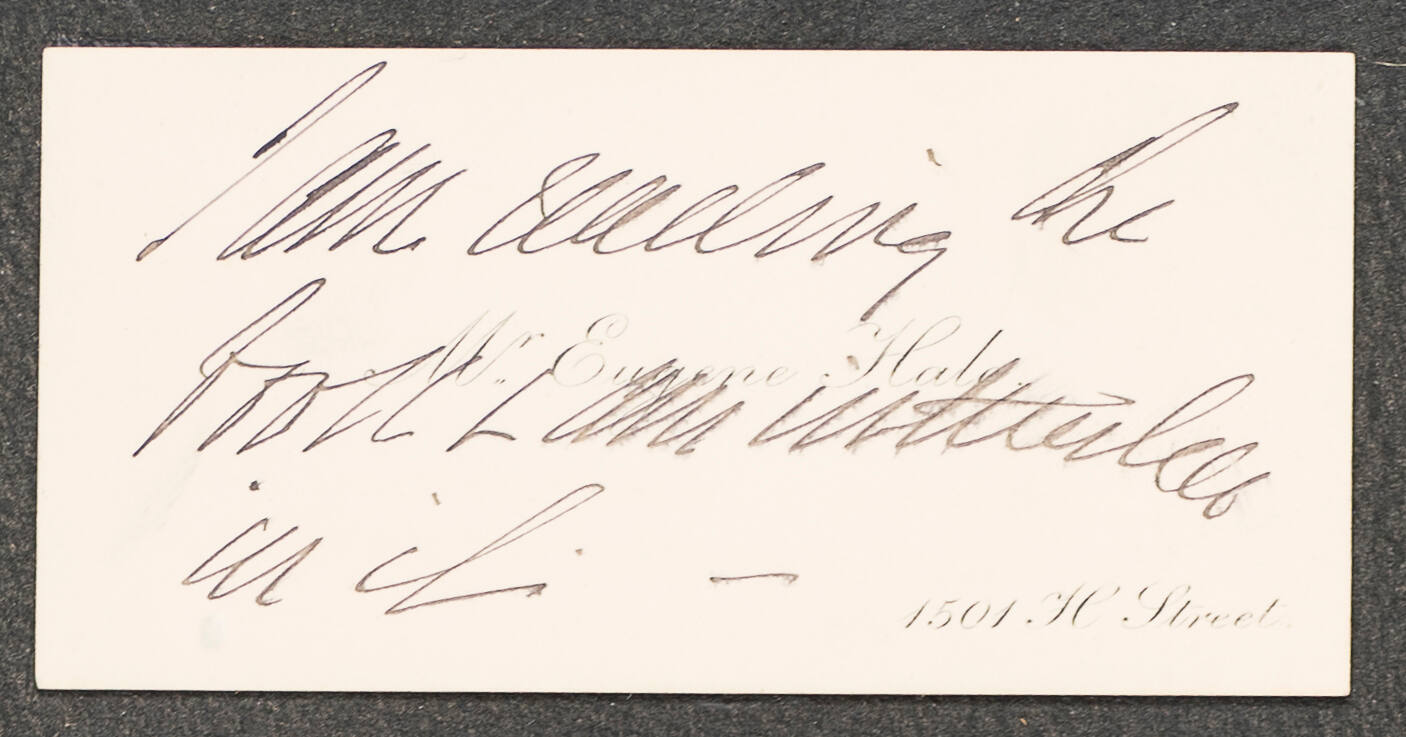 I am reading the
Mr. Eugene Hale.
book & am interested
in it. —
1501 H Street.